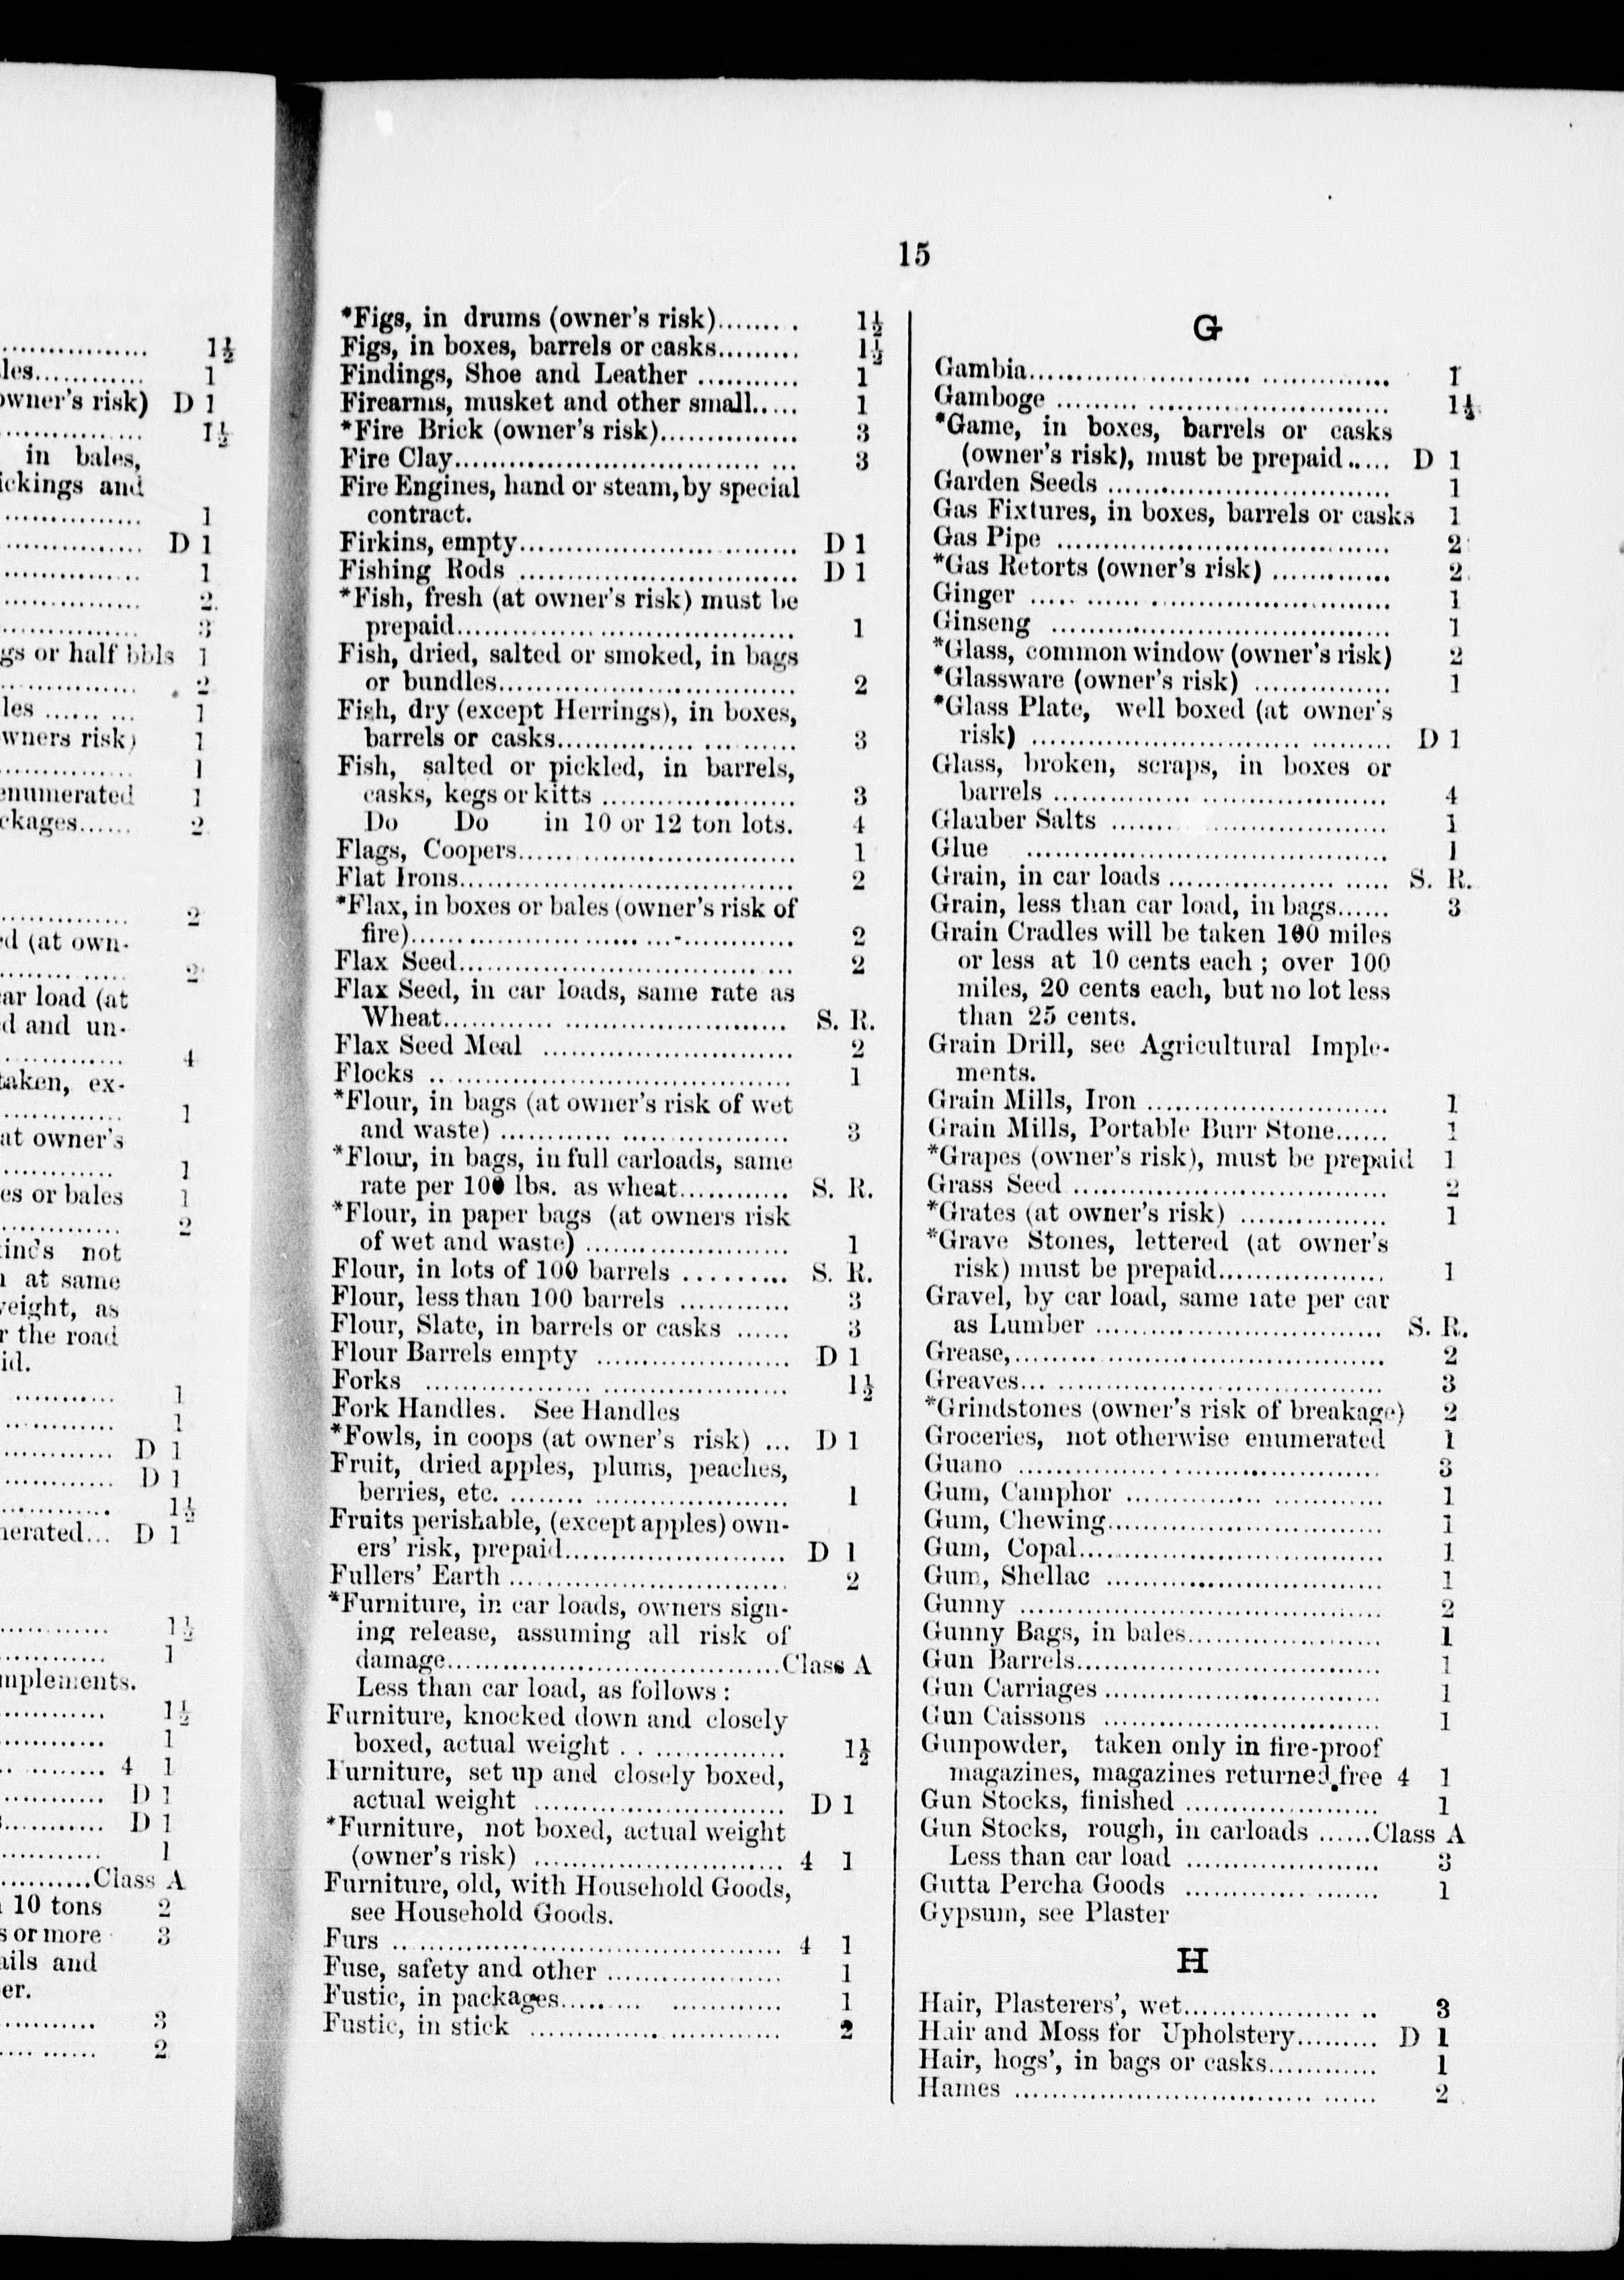 1½
les............ 1
owner's risk) D 1
1½
in bales,
ickings and
1
D 1
1
2
3
gs or half bbls 1
2
les ......... 1
wners risk) 1
1
enumerated 1
ckages...... 2
2
ed (at own-
2
car load (at
d and un-
4
taken, ex-
1
at owner's
1
es or bales 1
2
not
n at same
weight, as
r the road
id.
1
1
D 1
D 1
1½
nerated... D 1
1½
1
mplements.
1½
1
4 1
D 1
D 1
1
Class A
10 tons 2
s or more 3
ails and
er.
3
2
15
*Figs, in drums (owner's risk)........ 1½
Figs, in boxes, barrels or casks......... 1½
Findings, Shoe and Leather ........... 1
Firearms, musket and other small..... 1
*Fire Brick (owner's risk)............... 3
Fire Clay................................. 3
Fire Engines, hand or steam, by special
contract.
Firkins, empty.............................. D 1
Fishing Rods .............................. D 1
*Fish, fresh (at owner's risk) must be
prepaid..................................... 1
Fish, dried, salted or smoked, in bags
or bundles................................ 2
Fish, dry (except Herrings), in boxes,
barrels or casks.......................... 3
Fish, salted or pickled, in barrels,
casks, kegs or kitts ..................... 3
Do Do in 10 or 12 ton lots. 4
Flags, Coopers.............................. 1
Flat Irons.................................... 2
*Flax, in boxes or bales (owner's risk of
fire)......................................... 2
Flax Seed.................................... 2
Flax Seed, in car loads, same rate as
Wheat..................................... S. R.
Flax Seed Meal ........................... 2
Flocks ....................................... 1
*Flour, in bags (at owner's risk of wet
and waste) ............................... 3
*Flour, in bags, in full carloads, same
rate per 100 lbs. as wheat............ S. R.
*Flour, in paper bags (at owners risk
of wet and waste) ...................... 1
Flour, in lots of 100 barrels .......... S. R.
Flour, less than 100 barrels ............ 3
Flour, Slate, in barrels or casks ...... 3
Flour Barrels empty ..................... D 1
Forks ....................................... 1½
Fork Handles. See Handles
*Fowls, in coops (at owner's risk) ... D 1
Fruit, dried apples, plums, peaches,
berries, etc. .............................. 1
Fruits perishable, (except apples) own-
ers' risk, prepaid........................ D 1
Fullers' Earth .............................. 2
*Furniture, in car loads, owners sign-
ing release, assuming all risk of
damage....................................Class A
Less than car load, as follows :
Furniture, knocked down and closely
boxed, actual weight .................. 1½
Furniture, set up and closely boxed,
actual weight ........................... D 1
*Furniture, not boxed, actual weight
(owner's risk) ........................... 4 1
Furniture, old, with Household Goods,
see Household Goods.
Furs .......................................... 4 1
Fuse, safety and other ................... 1
Fustic, in packages..................... 1
Fustic, in stick ........................... 2
G
Gambia....................................... 1
Gamboge .................................... 1½
*Game, in boxes, barrels or casks
(owner's risk), must be prepaid..... D 1
Garden Seeds .............................. 1
Gas Fixtures, in boxes, barrels or casks 1
Gas Pipe .................................... 2
*Gas Retorts (owner's risk) ............. 2
Ginger ....................................... 1
Ginseng ..................................... 1
*Glass, common window (owner's risk) 2
*Glassware (owner's risk) ............... 1
*Glass Plate, well boxed (at owner's
risk) ....................................... D 1
Glass, broken, scraps, in boxes or
barrels .................................... 4
Glauber Salts .............................. 1
Glue ....................................... 1
Grain, in car loads ........................ S. R.
Grain, less than car load, in bags...... 3
Grain Cradles will be taken 100 miles
or less at 10 cents each ; over 100
miles, 20 cents each, but no lot less
than 25 cents.
Grain Drill, see Agricultural Imple-
ments.
Grain Mills, Iron .......................... 1
Grain Mills, Portable Burr Stone...... 1
*Grapes (owner's risk), must be prepaid 1
Grass Seed .................................. 2
*Grates (at owner's risk) ................ 1
*Grave Stones, lettered (at owner's
risk) must be prepaid.................. 1
Gravel, by car load, same rate per car
as Lumber ............................... S. R.
Grease,....................................... 2
Greaves...................................... 3
*Grindstones (owner's risk of breakage) 2
Groceries, not otherwise enumerated 1
Guano ....................................... 3
Gum, Camphor ........................... 1
Gum, Chewing.............................. 1
Gum, Copal................................. 1
Gum, Shellac .............................. 1
Gunny ....................................... 2
Gunny Bags, in bales..................... 1
Gun Barrels................................. 1
Gun Carriages.............................. 1
Gun Caissons .............................. 1
Gunpowder, taken only in fire-proof
magazines, magazines returned free 4 1
Gun Stocks, finished ..................... 1
Gun Stocks, rough, in carloads ......Class A
Less than car load ..................... 3
Gutta Percha Goods ..................... 1
Gypsum, see Plaster
H
Hair, Plasterers', wet..................... 3
Hair and Moss for Upholstery......... D 1
Hair, hogs', in bags or casks............ 1
Hames ....................................... 2